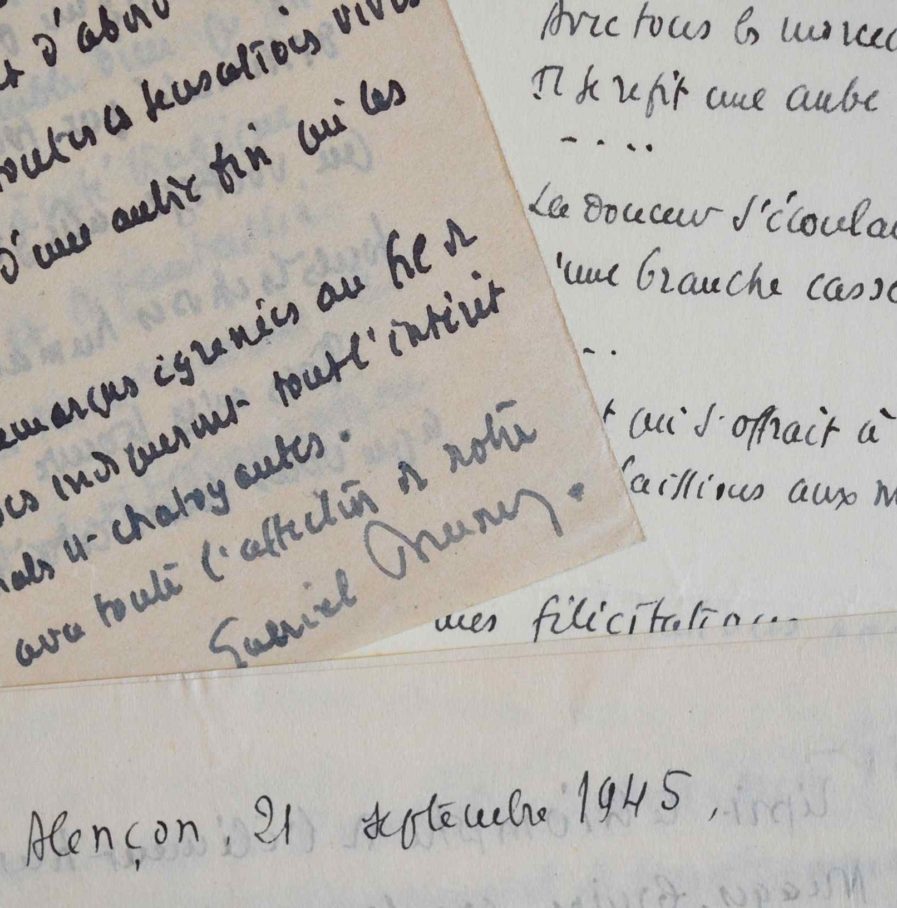 t d'abord
toutes les sensations vives
d'une autre fin où les
remarques égrenées au fil de
indiqueront tout l'intérêt
et chatoyantes.
avec toute l'affection de notre
Gabriel
Avec tous les morce
Il se refit une aube
- . . .
La douceur s'écoula
'une branche cassé
. .
t qui s'offrait à
faillions aux m
mes félicitations
Alençon, 21 septembre 1945,